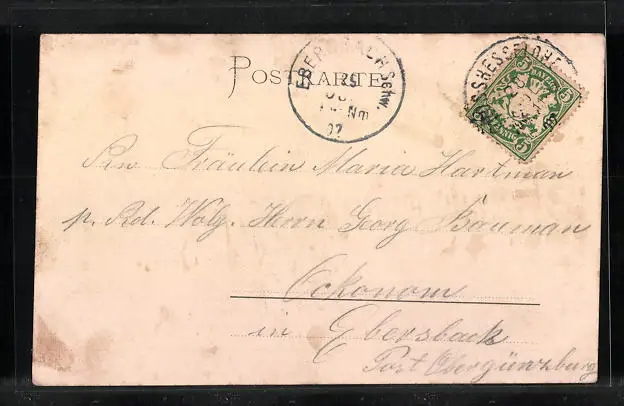 POSTKARTE
EBERSBACH Schw.
25
Nm
02
GROSSHESSELOHE
5 BAYERN 5
PFENNIG 5
Fräulein Maria Hartman
p. Ad. Wolg. Herrn Georg Bauman
Ockonom
in Ebersbach
Post Obergünzburg